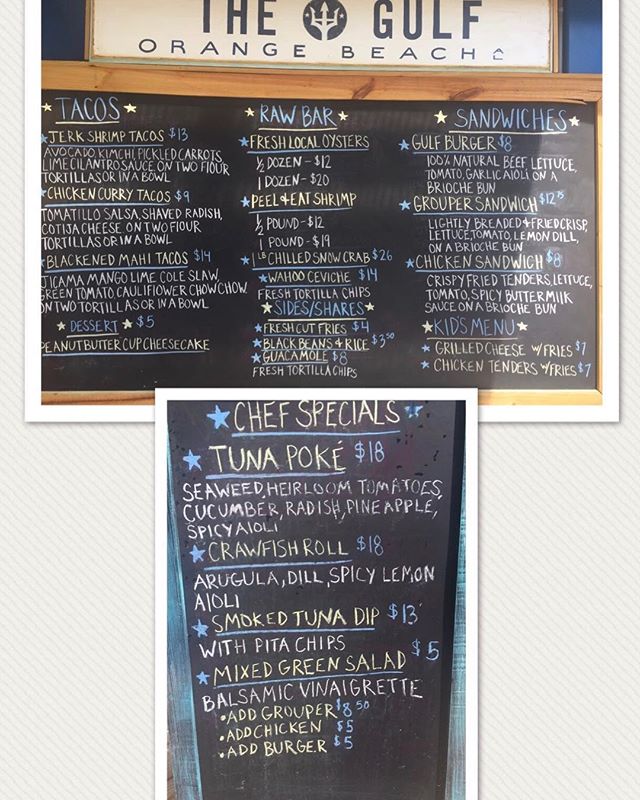 THE GULF
ORANGE BEACH
TACOS
JERK SHRIMP TACOS $13
AVOCADO KIMCHI, PICKLED CARROTS,
LIME CILANTRO SAUCE ON TWO FLOUR
TORTILLAS OR IN A BOWL
CHICKEN CURRY TACOS $9
TOMATILLO SALSA, SHAVED RADISH,
COTIJA CHEESE ON TWO FLOUR
TORTILLAS OR IN A BOWL
BLACKENED MAHI TACOS $14
JICAMA MANGO LIME COLE SLAW,
GREEN TOMATO, CAULIFLOWER CHOW CHOW,
ON TWO TORTILLAS OR IN A BOWL
DESSERT $5
PEANUT BUTTER CUP CHEESECAKE
RAW BAR
FRESH LOCAL OYSTERS
½ DOZEN - $12
1 DOZEN - $20
PEEL & EAT SHRIMP
½ POUND - $12
1 POUND - $19
1 LB CHILLED SNOW CRAB $26
WAHOO CEVICHE $14
FRESH TORTILLA CHIPS
SIDES/SHARES
FRESH CUT FRIES $4
BLACK BEANS & RICE $3.50
GUACAMOLE $8
FRESH TORTILLA CHIPS
SANDWICHES
GULF BURGER $8
100% NATURAL BEEF, LETTUCE,
TOMATO, GARLIC AIOLI ON A
BRIOCHE BUN
GROUPER SANDWICH $12.75
LIGHTLY BREADED & FRIED CRISP,
LETTUCE, TOMATO, LEMON DILL,
ON A BRIOCHE BUN
CHICKEN SANDWICH $8
CRISPY FRIED TENDERS, LETTUCE,
TOMATO, SPICY BUTTERMILK
SAUCE ON A BRIOCHE BUN
KID'S MENU
GRILLED CHEESE W/FRIES $7
CHICKEN TENDERS W/FRIES $7
CHEF SPECIALS
TUNA POKÉ $18
SEAWEED, HEIRLOOM TOMATOES,
CUCUMBER, RADISH, PINEAPPLE,
SPICY AIOLI
CRAWFISH ROLL $18
ARUGULA, DILL, SPICY LEMON
AIOLI
SMOKED TUNA DIP $13
WITH PITA CHIPS
MIXED GREEN SALAD $5
BALSAMIC VINAIGRETTE
• ADD GROUPER $8.50
• ADD CHICKEN $5
• ADD BURGER $5